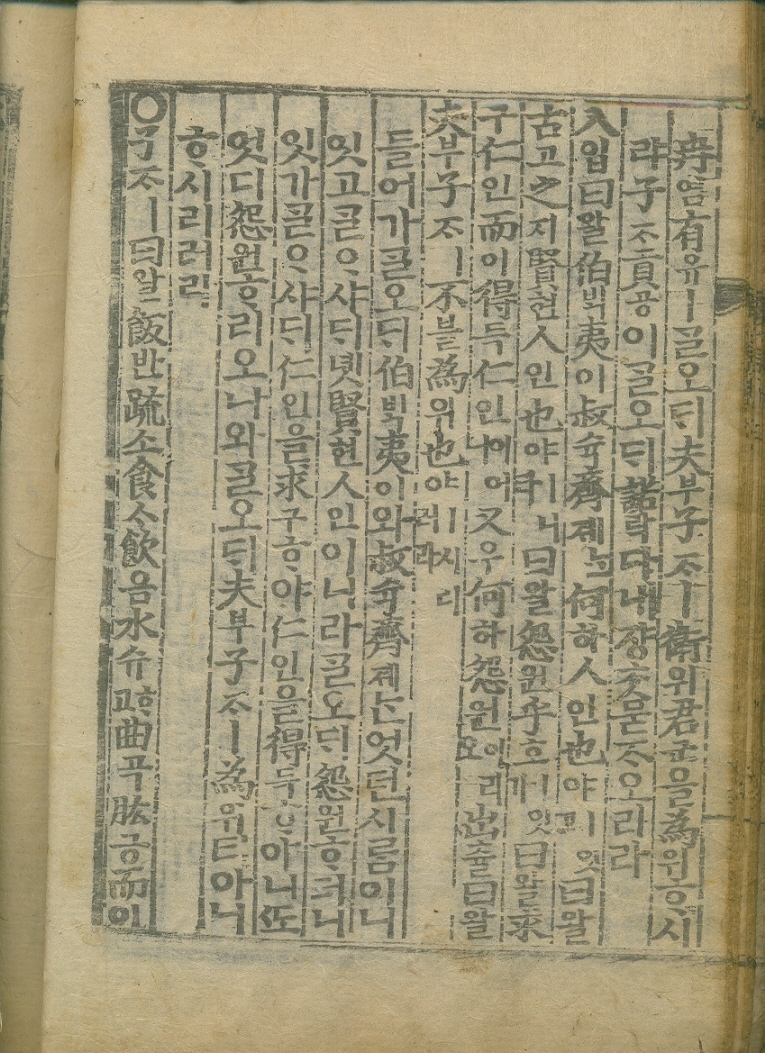 冉염有유ㅣᄀᆞᆯ오ᄃᆡ夫부子ᄌᆞㅣ衛위君군을為위ᄒᆞ시
랴子ᄌᆞ貢공이ᄀᆞᆯ오ᄃᆡ諾락다내쟝ᄎᆞᆺ묻ᄌᆞ오리라
入입曰왈伯ᄇᆡᆨ夷이叔슉齊졔ᄂᆞᆫ何하人인也야ㅣ잇고曰왈
古고之지賢현人인也야ㅣ니라曰왈怨원乎호ㅣ잇가曰왈求
구仁인而이得득仁인이어니又우何하怨원이리오出츌曰왈
夫부子ᄌᆞㅣ不블為위也야ㅣ시리러라
들어가ᄀᆞᆯ오ᄃᆡ伯ᄇᆡᆨ夷이와叔슉齊졔ᄂᆞᆫ엇던사ᄅᆞᆷ이니
잇고ᄀᆞᆯᄋᆞ샤ᄃᆡ녯賢현人인이니라ᄀᆞᆯ오ᄃᆡ怨원ᄒᆞ더니
잇가ᄀᆞᆯᄋᆞ샤ᄃᆡ仁인을求구ᄒᆞ야仁인을得득ᄒᆞ야니ᄯᅩ
엇디怨원ᄒᆞ리오나와ᄀᆞᆯ오ᄃᆡ夫부子ᄌᆞㅣ為위티아니
ᄒᆞ시리러라
○子ᄌᆞㅣ曰왈飯반疏소食ᄉᆞ飮음水슈ᄒᆞ고曲곡肱긍而이